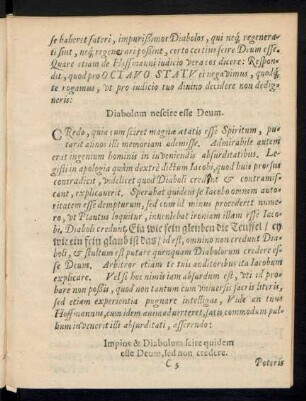 se haberet fateri, impurissimos Diabolos, qui neq́; regenera-
ti sint, neq́; regenerari possint, certo certius scire Deum esse.
Quare etiam de Hoffmanni iudicio vera eos dicere: Respon-
dit, quod pro OCTAVO STATV ei negavimus, quodq́;
te rogamus, vt pro iudicio tuo divino decidere non dedig-
neris:
Diabolum nescire esse Deum.
CRedo, quia cum sciret magnæ ætatis esse Spiritum, pu-
tarit annos illi memoriam ademisse. Admirabile autem
erat ingenium hominis in inveniendis absurditatibus. Le-
gisti in apologia quàm dextrè dictum Iacobi, quod huic prorsus
contradicit, videlicet quod Diaboli credant & contramis-
cant, explicaverit. Sperabat quidem se Iacobo omnem auto-
ritatem esse dempturum, sed cum id minus procederet nume-
ro, vt Plautus loquitur, inculcabat ironiam illam esse Iaco-
bi, Diaboli credunt, Eia wie fein gleuben die Teuffel / ey
wie ein fein glaub ist das; id est, omnino non credunt Diab-
oli, & stultum est putare quenquam Diabolorum credere es-
se Deum. Arbitror etiam te tuis auditoribus ita Iacobum
explicare. Vel si hoc nimis tam absurdum est, vt id pro-
bare non possis, quod non tantum cum universis sacris literis,
sed etiam experientia pugnare intelligas, Vide an tuus
Hoffmannus, cum idem animadverteret, satis commodum pul-
lum invenerit illi absurditati, asserendo:
Impios & Diabolum scire quidem
esse Deum, sed non credere.
C 3
Poteris